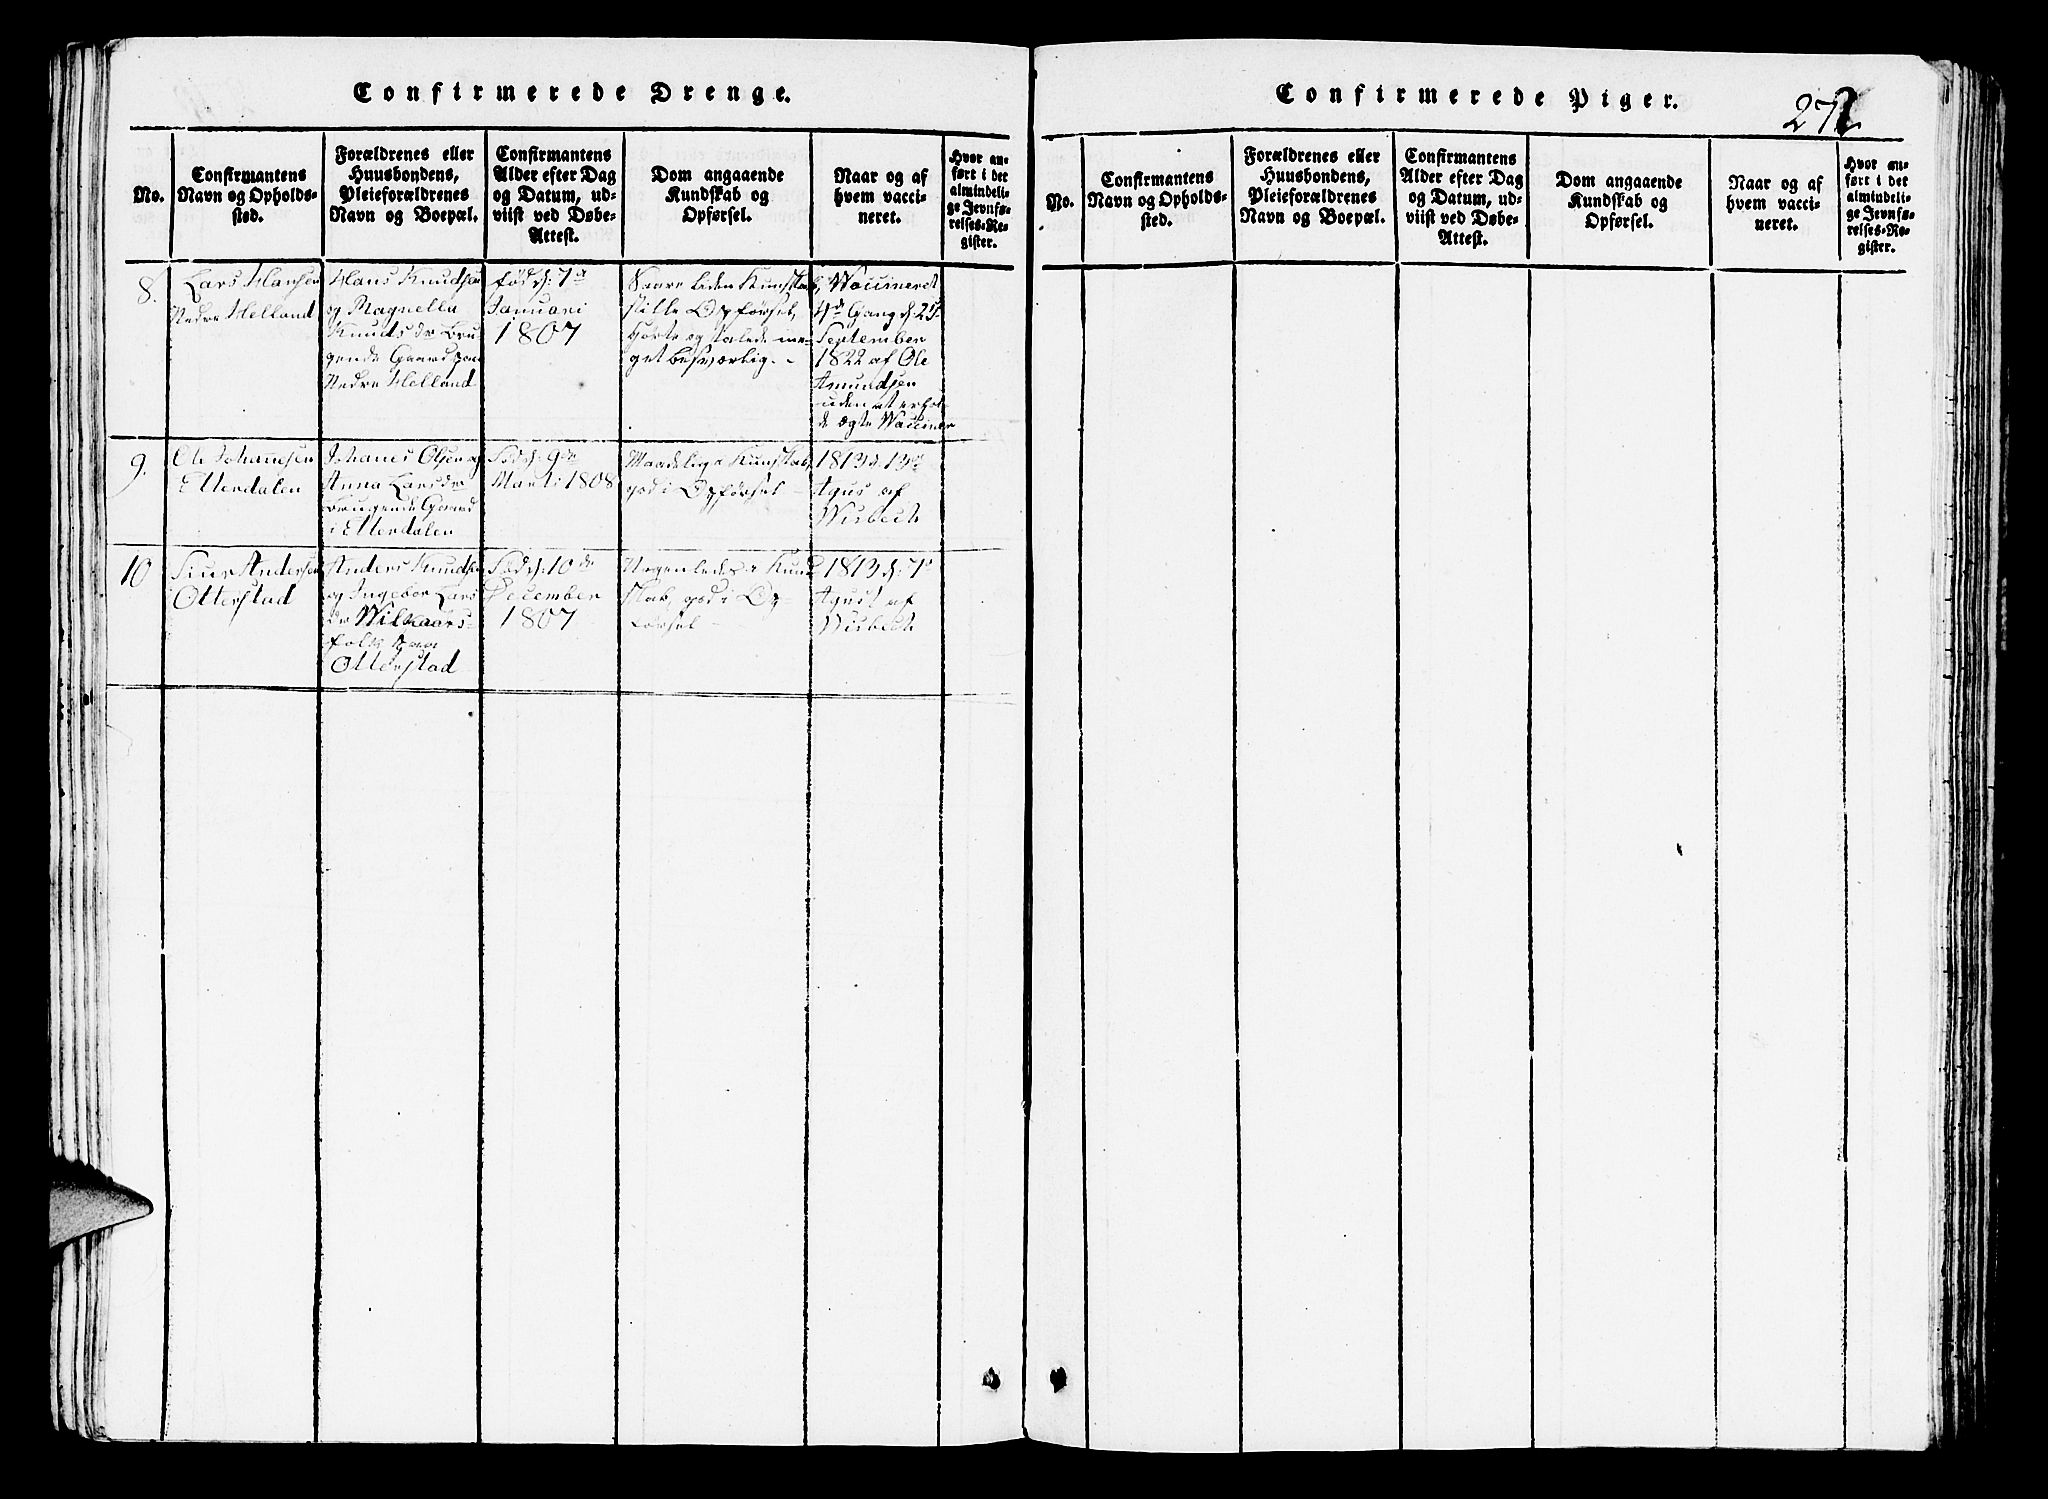 Confirmerede Drenge.
No.
Confirmantens
Navn og Opholds-
sted.
Forældrenes eller
Huusbondens,
Pleieforældrenes
Navn og Boepæl.
Confirmantens
Alder efter Dag
og Datum, ud-
viist ved Døbe-
Attest.
Dom angaaende
Kundskab og
Opførsel.
Naar og af
hvem vacci-
neret.
Hvor an-
ført i det
almindeli-
ge Jevnfø-
relses-Re-
gister.
8.
Lars Hansen
Nedre Helland
Hans Knudsen
og Magnella
Knuds dr Bru-
gende Gaard paa
Nedre Helland
fød d: 7de
Januari
1807
Saare liden Kunskab,
stille Opførsel,
hørte og talede me-
get besværlig. -
Waccineret
4de Gang d: 25
September
1822 af Ole
Amundsen
uden at erhol-
de ægte Vacciner
9.
Ole Johannesen
Etterdalen
Johanes Olsen og
Anna Larsdr
Brugende Gaard
i Etterdalen
Fød d: 9de
Marti 1808
Maadelig Kunskab,
god Opførsel -
1813 d: 13de
Agus af
Wisbech
10
Siur Andersen
Otterstad
Anders Knudsen
og Ingebor Lars
dr Wilkaars-
folk paa
Otterstad
Fød d: 10de
December
1807
Nogenledes Kund
skab, god Op-
førsel -
1813 d: 7de
Agust af
Wisbech
Confirmerede Piger.
272
No.
Confirmantens
Navn og Opholds-
sted.
Forældrenes eller
Huusbondens,
Pleieforældrenes
Navn og Boepæl.
Confirmantens
Alder efter Dag
og Datum, ud-
viist ved Døbe-
Attest.
Dom angaaende
Kundskab og
Opførsel.
Naar og af
hvem vacci-
neret.
Hvor an-
ført i det
almindeli-
ge Jevnfø-
relses-Re-
gister.